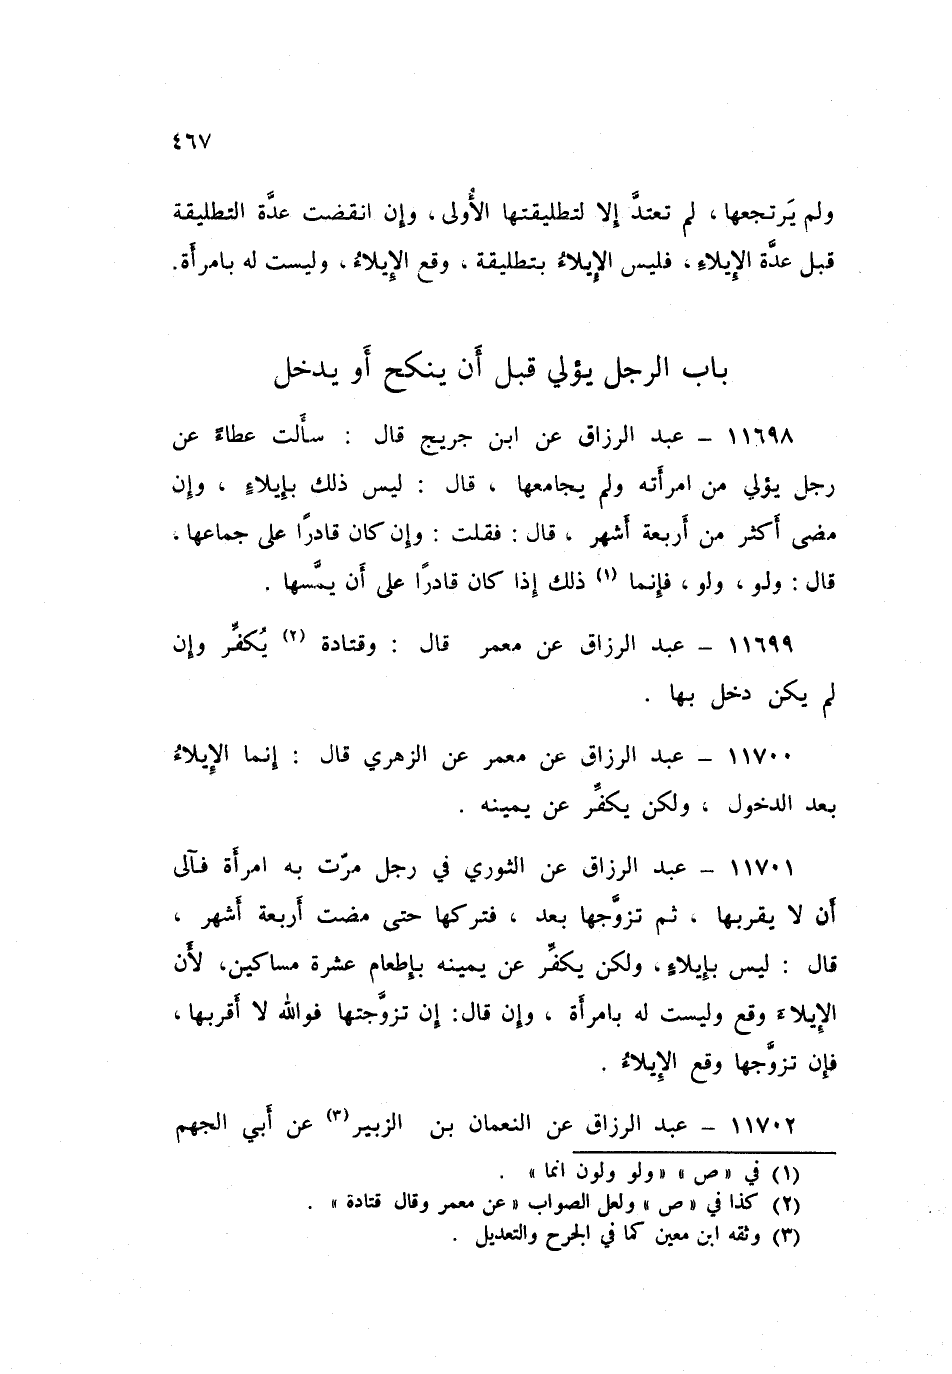 ٤٦٧
ولم يَرتجعها ، لم تعتدَّ إلا لتطليقتها الأُولى ، وإن انقضت عدَّة التطليقة
قبل عدَّة الإيلاءِ ، فليس الإيلاءُ بتطليقة ، وقع الإيلاءُ ، وليست له بامرأَة.
باب الرجل يؤلي قبل أَن ينكح أَو يدخل
١١٦٩٨ – عبد الرزاق عن ابن جريج قال : سأَلت عطاءً عن
رجل يؤلي من امرأَته ولم يجامعها ، قال : ليس ذلك بإيلاءٍ ، وإن
مضى أَكثر من أَربعة أَشهر ، قال : فقلت : وإن كان قادرًا على جماعها ،
قال : ولو ، ولو ، فإنما (١) ذلك إذا كان قادرًا على أَن يمَّسها .
١١٦٩٩ – عبد الرزاق عن معمر قال : وقتادة (٢) يُكفِّر وإن
لم يكن دخل بها .
١١٧٠٠ – عبد الرزاق عن معمر عن الزهري قال : إنما الإيلاءُ
بعد الدخول ، ولكن يكفِّر عن يمينه .
١١٧٠١ – عبد الرزاق عن الثوري في رجل مرّت به امرأَة فآلى
أَن لا يقربها ، ثم تزوَّجها بعد ، فتركها حتى مضت أَربعة أَشهر ،
قال : ليس بإيلاءٍ ، ولكن يكفِّر عن يمينه بإطعام عشرة مساكين، لأَن
الإيلاءَ وقع وليست له بامرأَة ، وإن قال: إن تزوَّجتها فوالله لا أَقربها ،
فإن تزوَّجها وقع الإيلاءُ .
١١٧٠٢ – عبد الرزاق عن النعمان بن الزبير(٣) عن أَبي الجهم
(١) في « ص » « ولو ولون انما » .
(٢) كذا في « ص » ولعل الصواب « عن معمر وقال قتادة » .
(٣) وثقه ابن معين كما في الجرح والتعديل .